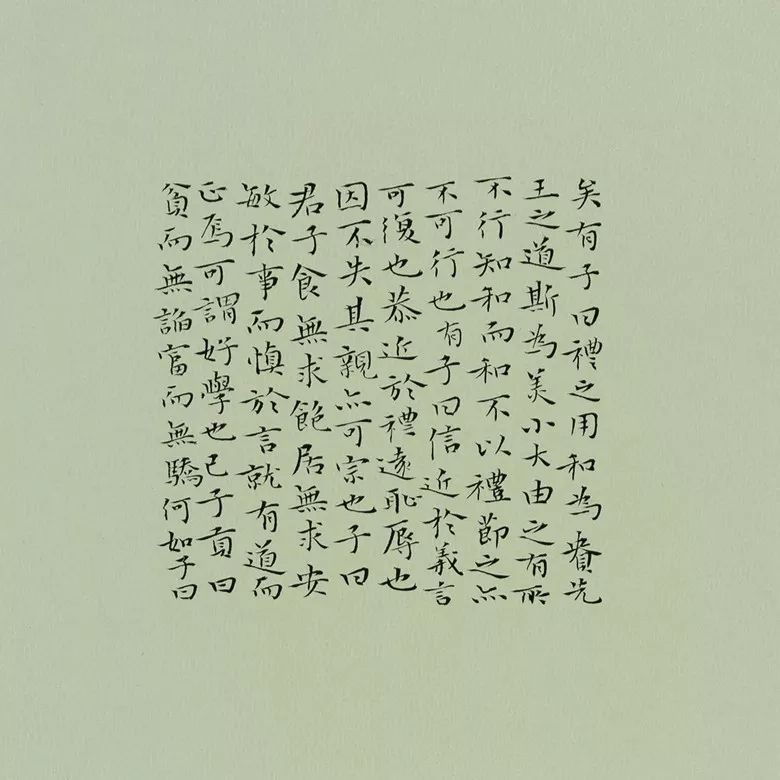 矣有子曰禮之用和為貴先
王之道斯為美小大由之有所
不行知和而和不以禮節之亦
不可行也有子曰信近於義言
可復也恭近於禮遠恥辱也
因不失其親亦可宗也子曰
君子食無求飽居無求安
敏於事而慎於言就有道而
正焉可謂好學也已子貢曰
貧而無諂富而無驕何如子曰